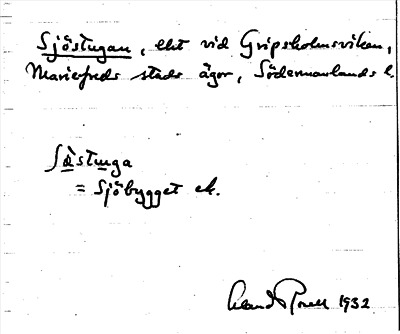 Sjöstugan, lht vid Gripsholmsviken,
Mariefreds stads ägor, Södermanlands l.
ʃö̀stuga
= Sjöbygget ek.
1932